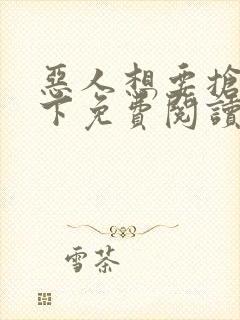 惡人想要搶救一
下免費閱讀
雪茶